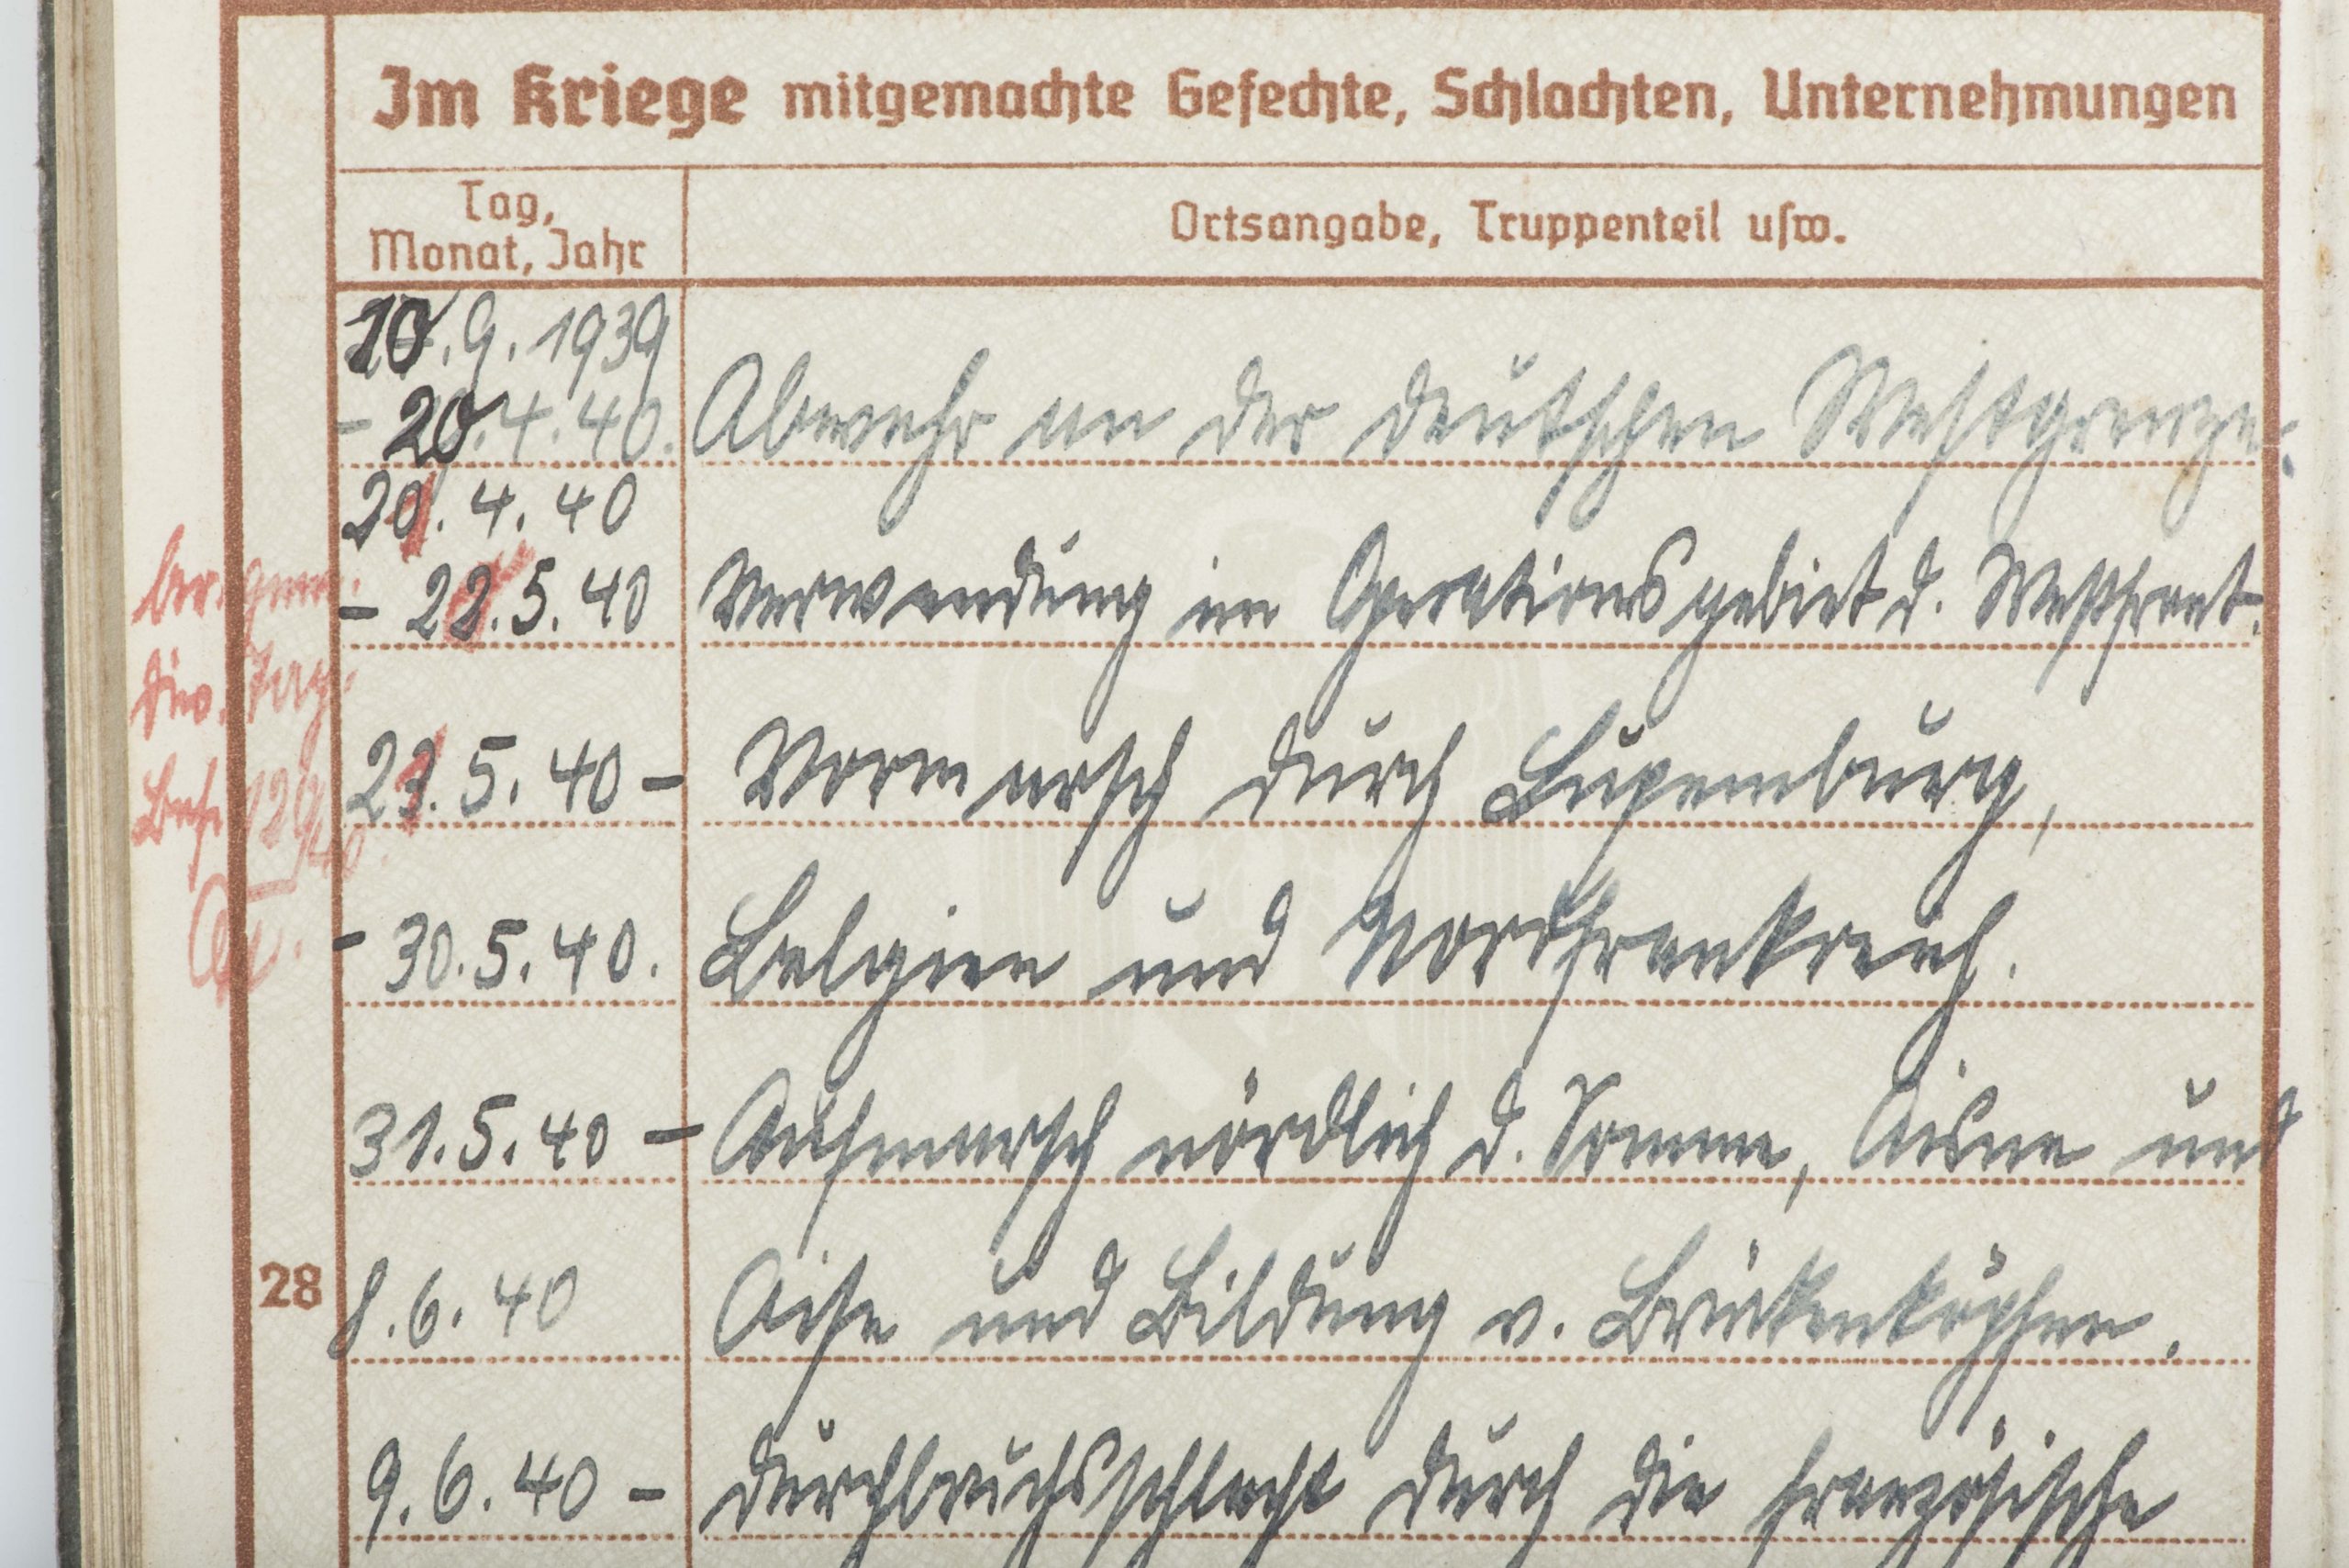 Im Kriege mitgemachte Gefechte, Schlachten, Unternehmungen
Tag,
Monat, Jahr
Ortsangabe, Truppenteil usw.
10.9.1939
- 20.4.40. Abwehr an der deutschen Westgrenze.
20.4.40
- 22.5.40 Verwendung im Operationsgebiet d. Westfront.
23.5.40 - Vormarsch durch Luxemburg,
- 30.5.40. Belgien und Nordfrankreich.
31.5.40 - Aufmarsch nördlich d. Somme, Aisne und
28
8.6.40 Oise und Bildung v. Brückenköpfen.
9.6.40 - Durchbruchsschlacht durch die französische
ber. gem.
Div. Tag.
Bef. 129/40.